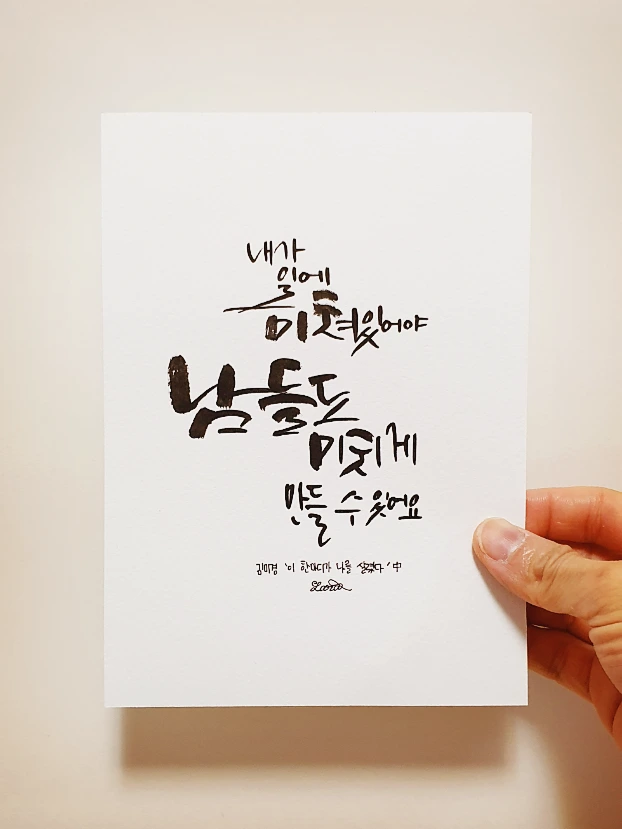 내가
일에
미쳐있어야
남들도
미치게
만들 수 있어요
김미경 '이 한마디가 나를 살렸다' 中